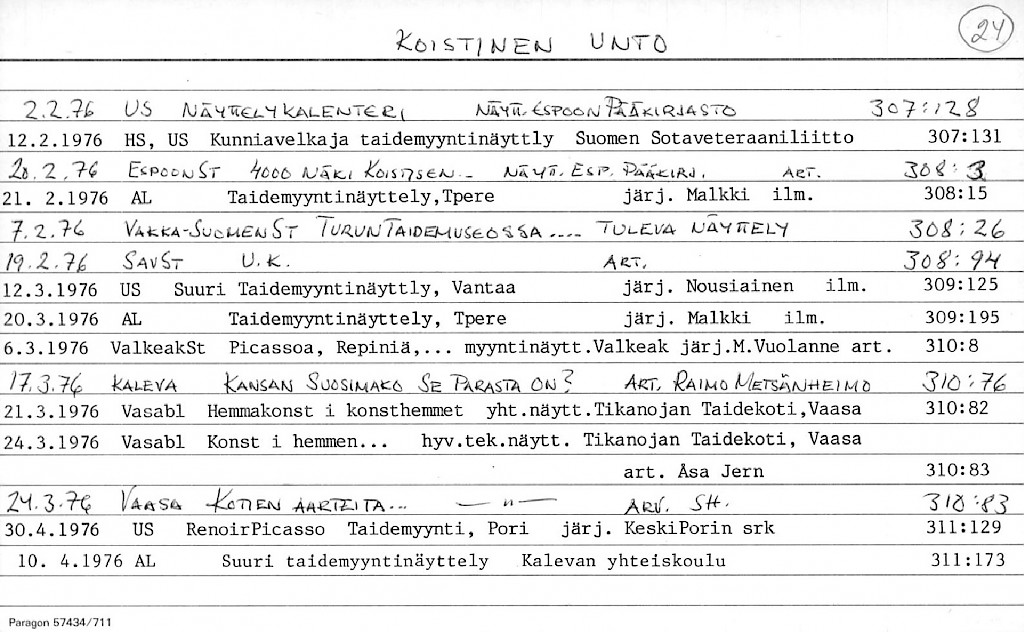 KOISTINEN UNTO 24
2.2.76 US NÄYTTELYKALENTERI NÄYTT. ESPOON PÄÄKIRJASTO 307:128
12.2.1976 HS, US Kunniavelkaja taidemyyntinäyttly Suomen Sotaveteraaniliitto 307:131
20.2.76 ESPOONST 4000 NÄKI KOISTISEN... NÄYT. ESP. PÄÄKIRJ. ART. 308:3
21. 2.1976 AL Taidemyyntinäyttely,Tpere järj. Malkki ilm. 308:15
7.2.76 VAKKA-SUOMENST TURUN TAIDEMUSEOSSA.... TULEVA NÄYTTELY 308:26
19.2.76 SAVST U.K. ART. 308:94
12.3.1976 US Suuri Taidemyyntinäyttly, Vantaa järj. Nousiainen ilm. 309:125
20.3.1976 AL Taidemyyntinäyttely, Tpere järj. Malkki ilm. 309:195
6.3.1976 ValkeakSt Picassoa, Repiniä,... myyntinäytt.Valkeak järj.M.Vuolanne art. 310:8
17.3.76 KALEVA KANSAN SUOSIMAKO SE PARASTA ON? ART. RAIMO METSÄNHEIMO 310:76
21.3.1976 Vasabl Hemmakonst i konsthemmet yht.näytt.Tikanojan Taidekoti,Vaasa 310:82
24.3.1976 Vasabl Konst i hemmen... hyv.tek.näytt. Tikanojan Taidekoti, Vaasa
art. Åsa Jern 310:83
24.3.76 VAASA KOTIEN AARTEITA... —"— ARV. SH. 310:83
30.4.1976 US RenoirPicasso Taidemyynti, Pori järj. KeskiPorin srk 311:129
10. 4.1976 AL Suuri taidemyyntinäyttely Kalevan yhteiskoulu 311:173
Paragon 57434/711